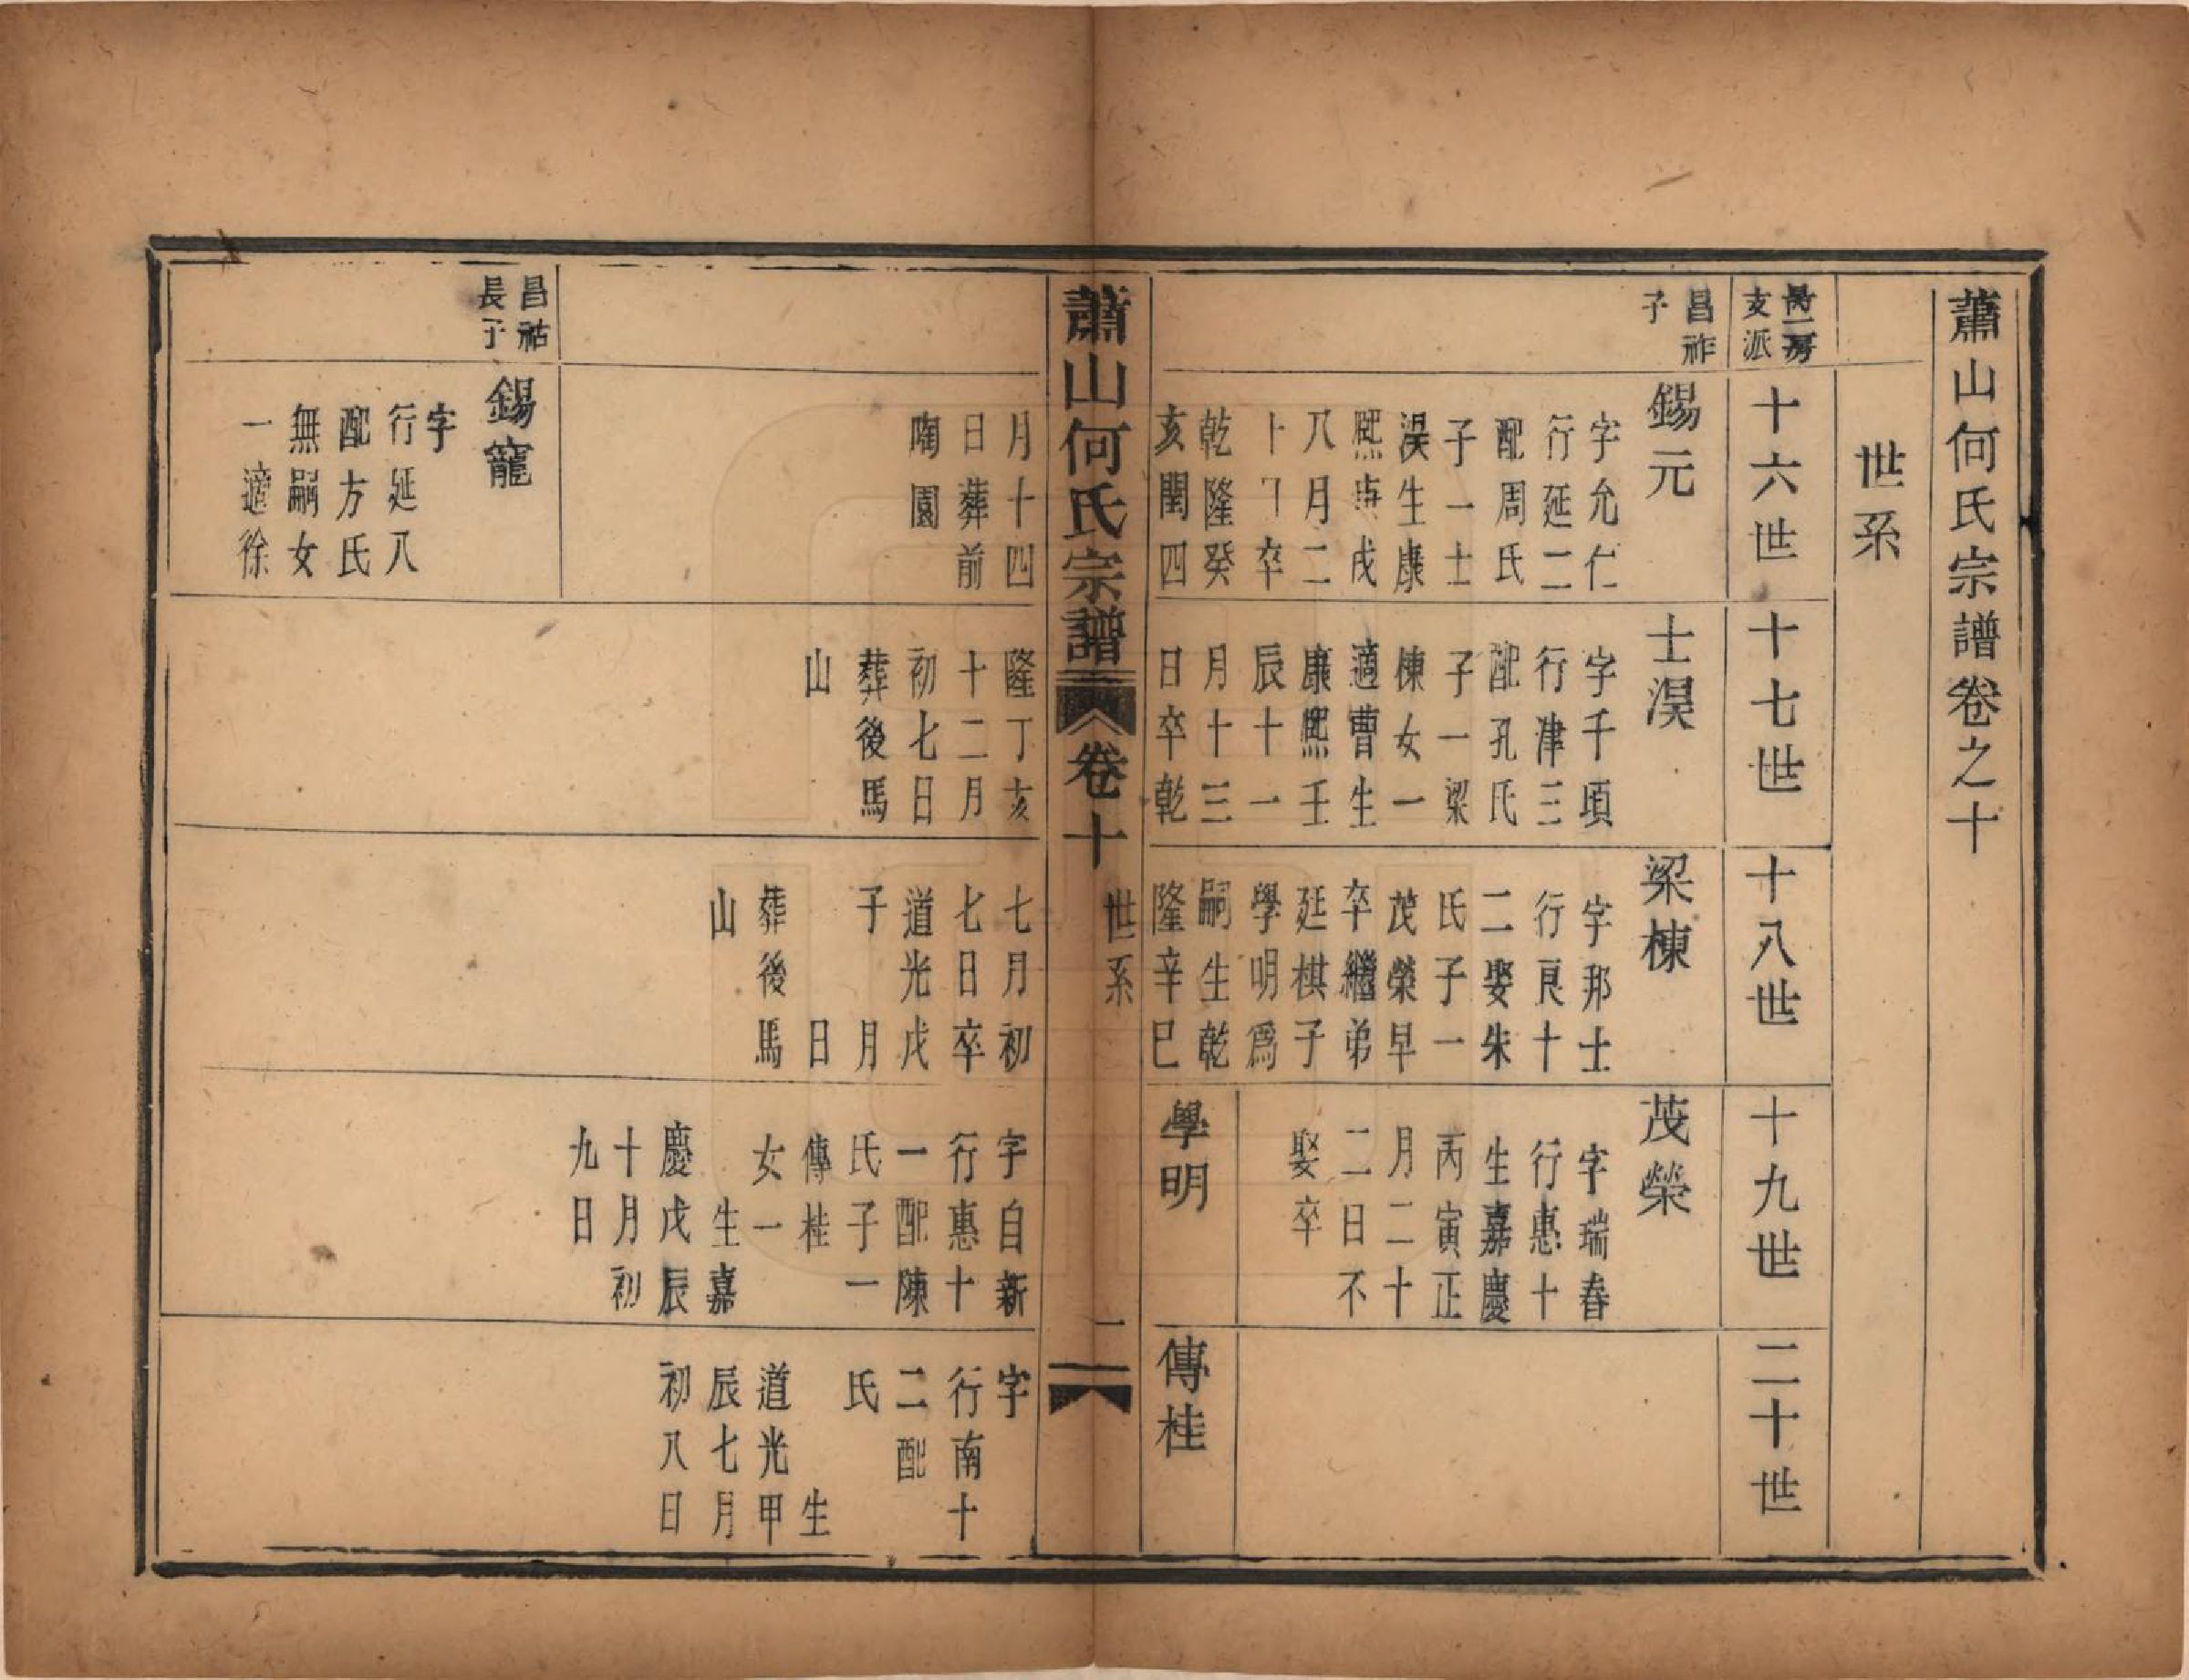 蕭山何氏宗譜卷之十
世系
支派
十六世
十七世
十八世
十九世
二十世
昌祚
子
錫元
字允仁
行延二
配周氏
子一士
淏生康
熙庚戌
八月二
十丁卒
乾隆癸
亥閏四
士淏
字千頃
行津三
配孔氏
子一梁
棟女一
適曹生
康熙壬
辰十一
月十三
日卒乾
梁棟
字邦士
行良十
二娶朱
氏子一
茂榮早
卒繼弟
廷棋子
學明爲
嗣生乾
隆辛巳
茂榮
字瑞春
行惠十
生嘉慶
丙寅正
月二十
二日不
娶卒
學明
傳桂
蕭山何氏宗譜
卷十
世系
二
月十四
日葬前
陶園
隆丁亥
十二月
初七日
葬後馬
山
七月初
七日卒
道光戊
子 月
日
葬後馬
山
字自新
行惠十
一配陳
氏子一
傳桂
女一
生嘉
慶戊辰
十月初
九日
字
行南十
二配
氏
生
道光甲
辰七月
初八日
昌祜
長子
錫寵
字
行延八
配方氏
無嗣女
一適徐